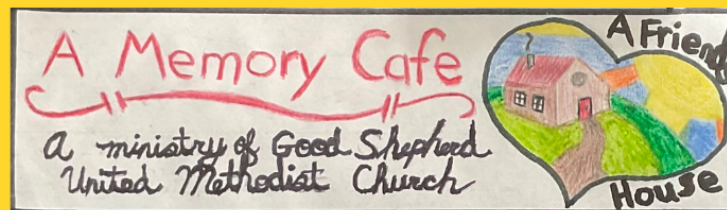 A Memory Cafe
a ministry of Good Shepherd
United Methodist Church
A Friend
House